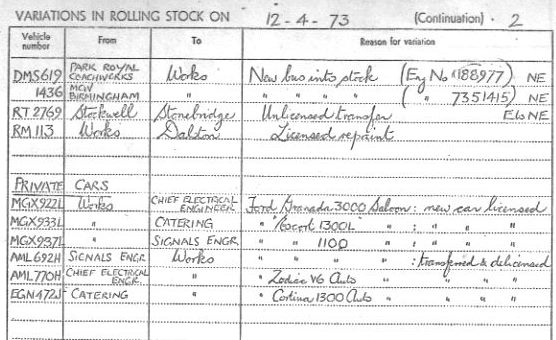 VARIATIONS IN ROLLING STOCK ON 12-4-73 (Continuation) · 2
Vehicle number From To Reason for variation
DMS619 PARK ROYAL COACHWORKS Works New bus into stock (Eng No 188977) NE
1436 MCW BIRMINGHAM " " " " " ( " 7351415) NE
RT 2769 Stockwell Stonebridge Unlicensed transfer Els NE
RM 113 Works Dalston Licensed repaint
PRIVATE CARS
MGX922L Works CHIEF ELECTRICAL ENGINEER Ford Granada 3000 Saloon: new car licensed
MGX933L " CATERING " Escort 1300L " : " " "
MGX937L " SIGNALS ENGR. " " 1100 " : " " "
AML692H SIGNALS ENGR. Works " " " " : transferred & delicensed
AML770H CHIEF ELECTRICAL ENGR " " Zodiac V6 Auto " " "
EGN472J CATERING " " Cortina 1300 Auto " " "